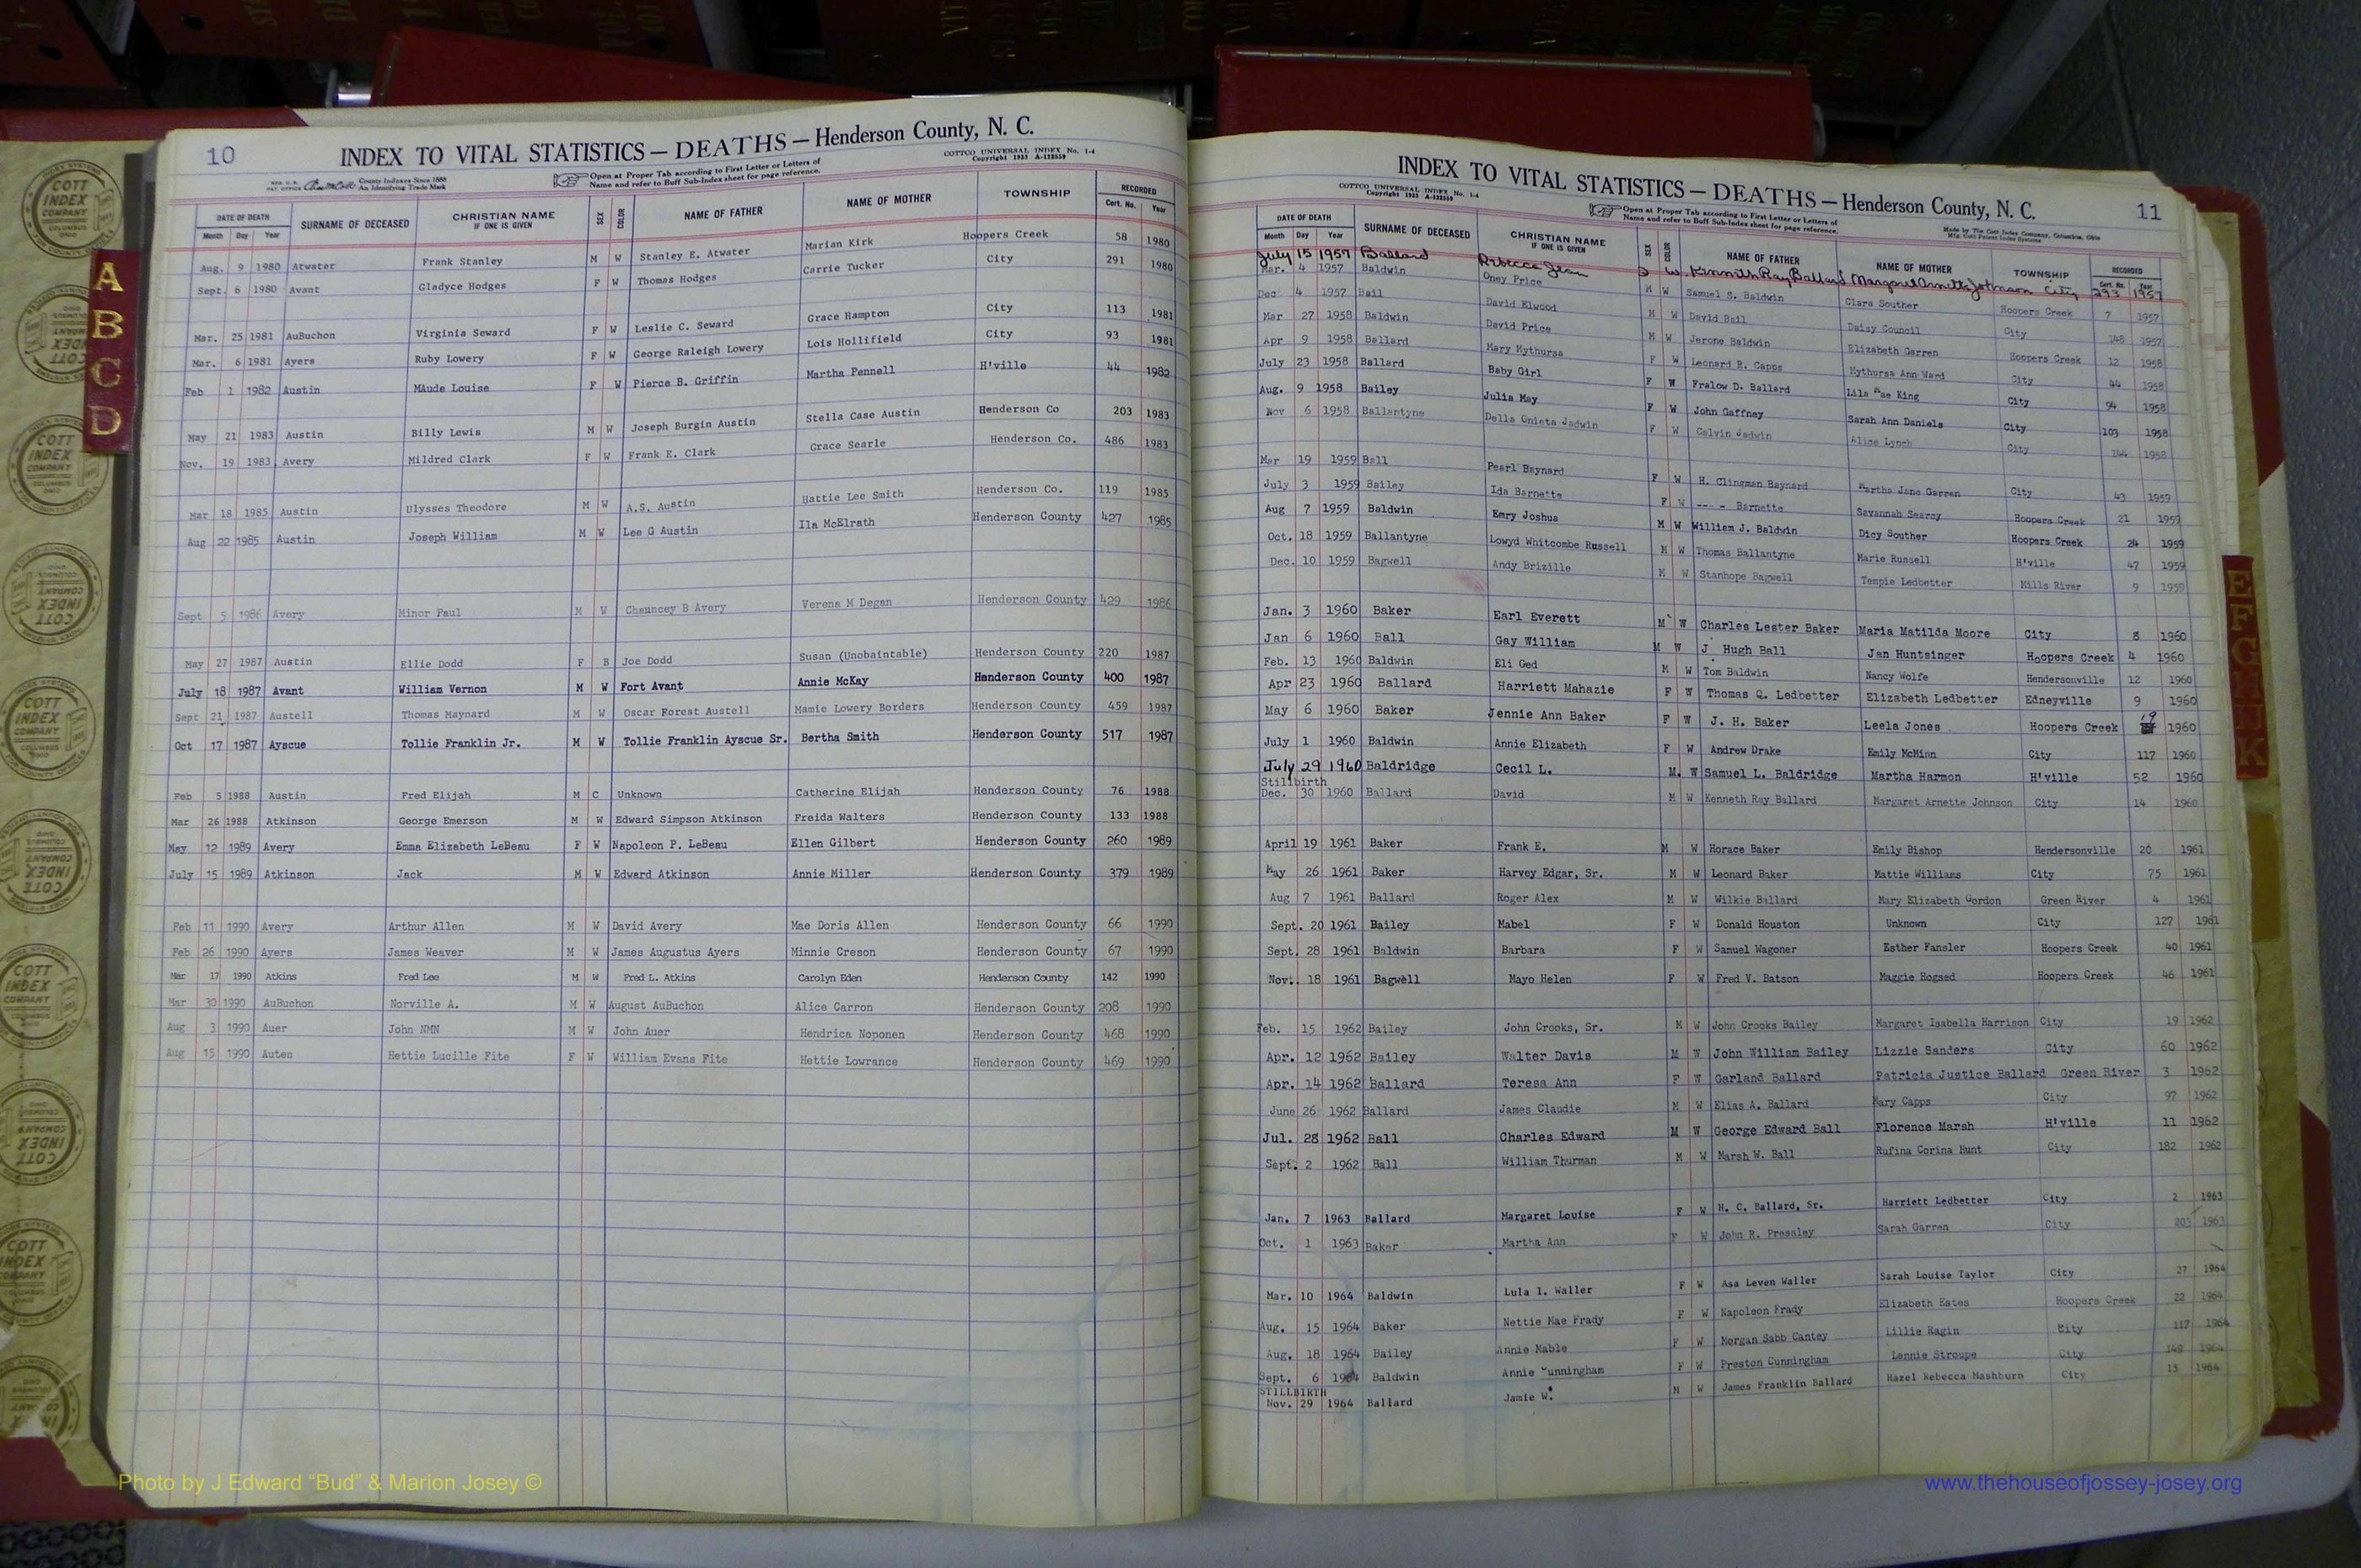 10
INDEX TO VITAL STATISTICS — DEATHS — Henderson County, N. C.
COTTCO UNIVERSAL INDEX No. 1-4
Copyright 1933 A-122559
County Indexes Since 1888
An Identifying Trade Mark
Open at Proper Tab according to First Letter or Letters of
Name and refer to Buff Sub-Index sheet for page reference.
DATE OF DEATH SURNAME OF DECEASED CHRISTIAN NAME SEX COLOR NAME OF FATHER NAME OF MOTHER TOWNSHIP RECORDED
Month Day Year IF ONE IS GIVEN Cert. No. Year
Aug. 9 1980 Atwater Frank Stanley M W Stanley E. Atwater Marian Kirk Hoopers Creek 58 1980
Sept. 6 1980 Avant Gladyce Hodges F W Thomas Hodges Carrie Tucker City 291 1980
Mar. 25 1981 AuBuchon Virginia Seward F W Leslie C. Seward Grace Hampton City 113 1981
Mar. 6 1981 Ayers Ruby Lowery F W George Raleigh Lowery Lois Hollifield City 93 1981
Feb 1 1982 Austin MAude Louise F W Pierce B. Griffin Martha Pennell H'ville 44 1982
May 21 1983 Austin Billy Lewis M W Joseph Burgin Austin Stella Case Austin Henderson Co 203 1983
Nov. 19 1983 Avery Mildred Clark F W Frank E. Clark Grace Searle Henderson Co. 486 1983
Mar 18 1985 Austin Ulysses Theodore M W A.S. Austin Hattie Lee Smith Henderson Co. 119 1985
Aug 22 1985 Austin Joseph William M W Lee G Austin Ila McElrath Henderson County 427 1985
Sept 5 1986 Avery Minor Paul M W Chauncey B Avery Verena M Degan Henderson County 429 1986
May 27 1987 Austin Ellie Dodd F B Joe Dodd Susan (Unobaintable) Henderson County 220 1987
July 18 1987 Avant William Vernon M W Fort Avant Annie McKay Henderson County 400 1987
Sept 21 1987 Austell Thomas Maynard M W Oscar Forest Austell Mamie Lowery Borders Henderson County 459 1987
Oct 17 1987 Ayscue Tollie Franklin Jr. M W Tollie Franklin Ayscue Sr. Bertha Smith Henderson County 517 1987
Feb 5 1988 Austin Fred Elijah M C Unknown Catherine Elijah Henderson County 76 1988
Mar 26 1988 Atkinson George Emerson M W Edward Simpson Atkinson Freida Walters Henderson County 133 1988
May 12 1989 Avery Emma Elizabeth LeBeau F W Napoleon P. LeBeau Ellen Gilbert Henderson County 260 1989
July 15 1989 Atkinson Jack M W Edward Atkinson Annie Miller Henderson County 379 1989
Feb 11 1990 Avery Arthur Allen M W David Avery Mae Doris Allen Henderson County 66 1990
Feb 26 1990 Ayers James Weaver M W James Augustus Ayers Minnie Creson Henderson County 67 1990
Mar 17 1990 Atkins Fred Lee M W Fred L. Atkins Carolyn Eden Henderson County 142 1990
Mar 30 1990 AuBuchon Norville A. M W August AuBuchon Alice Carron Henderson County 208 1990
Aug 3 1990 Auer John NMN M W John Auer Hendrica Noponen Henderson County 468 1990
Aug 15 1990 Auten Hettie Lucille Fite F W William Evans Fite Hettie Lowrance Henderson County 469 1990
A
B
C
D
INDEX TO VITAL STATISTICS — DEATHS — Henderson County, N. C.
11
COTTCO UNIVERSAL INDEX No. 1-4
Copyright 1933 A-122559
Open at Proper Tab according to First Letter or Letters of
Name and refer to Buff Sub-Index sheet for page reference.
Made by The Cott Index Company, Columbus, Ohio
DATE OF DEATH SURNAME OF DECEASED CHRISTIAN NAME SEX COLOR NAME OF FATHER NAME OF MOTHER TOWNSHIP RECORDED
Month Day Year IF ONE IS GIVEN Cert. No. Year
July 15 1957 Ballard Rebecca Jean W Kennith Ray Ballard Margaret Arnette Johnson City 293 1957
Mar. 4 1957 Baldwin Oney Price M W Samuel S. Baldwin Clara Souther Hoopers Creek 7 1957
Dec 4 1957 Bail David Elwood M W David Bail Daisy Council City 148 1957
Mar 27 1958 Baldwin David Price M W Jerone Baldwin Elizabeth Garren Hoopers Creek 12 1958
Apr 9 1958 Ballard Mary Mythursa F W Leonard R. Capps Mythursa Ann Ward City 44 1958
July 23 1958 Ballard Baby Girl F W Fralow D. Ballard Lila Mae King City 94 1958
Aug. 9 1958 Bailey Julia May F W John Gaffney Sarah Ann Daniels City 103 1958
Nov 6 1958 Ballantyne Della Onieta Jadwin F W Calvin Jadwin Alice Lynch City 144 1958
Mar 19 1959 Ball Pearl Baynard F W H. Clingman Baynard Martha Jane Garren City 43 1959
July 3 1959 Bailey Ida Barnette F W --- - Barnette Savannah Searcy Hoopers Creek 21 1959
Aug 7 1959 Baldwin Emry Joshua M W William J. Baldwin Dicy Souther Hoopers Creek 24 1959
Oct. 18 1959 Ballantyne Lowyd Whitcombe Russell M W Thomas Ballantyne Marie Russell H'ville 47 1959
Dec. 10 1959 Bagwell Andy Brizille M W Stanhope Bagwell Tempie Ledbetter Mills River 9 1959
Jan. 3 1960 Baker Earl Everett M W Charles Lester Baker Maria Matilda Moore City 8 1960
Jan 6 1960 Ball Gay William M W J Hugh Ball Jan Huntsinger Hoopers Creek 4 1960
Feb. 13 1960 Baldwin Eli Ged M W Tom Baldwin Nancy Wolfe Hendersonville 12 1960
Apr 23 1960 Ballard Harriett Mahazie F W Thomas Q. Ledbetter Elizabeth Ledbetter Edneyville 9 1960
May 6 1960 Baker Jennie Ann Baker F W J. H. Baker Leela Jones Hoopers Creek 19 1960
July 1 1960 Baldwin Annie Elizabeth F W Andrew Drake Emily McMinn City 117 1960
July 29 1960 Baldridge Cecil L. M. W Samuel L. Baldridge Martha Harmon H'ville 52 1960
Stillbirth
Dec. 30 1960 Ballard David M W Kenneth Ray Ballard Margaret Arnette Johnson City 14 1960
April 19 1961 Baker Frank E. M W Horace Baker Emily Bishop Hendersonville 20 1961
May 26 1961 Baker Harvey Edgar, Sr. M W Leonard Baker Mattie Williams City 75 1961
Aug 7 1961 Ballard Roger Alex M W Wilkie Ballard Mary Elizabeth Gordon Green River 4 1961
Sept. 20 1961 Bailey Mabel F W Donald Houston Unknown City 127 1961
Sept. 28 1961 Baldwin Barbara F W Samuel Wagoner Esther Fansler Hoopers Creek 40 1961
Nov. 18 1961 Bagwell Mayo Helen F W Fred V. Batson Maggie Hogsed Hoopers Creek 46 1961
Feb. 15 1962 Bailey John Crooks, Sr. M W John Crooks Bailey Margaret Isabella Harrison City 19 1962
Apr. 12 1962 Bailey Walter Davis M W John William Bailey Lizzie Sanders City 60 1962
Apr. 14 1962 Ballard Teresa Ann F W Garland Ballard Patricia Justice Ballard Green River 3 1962
June 26 1962 Ballard James Claudie M W Elias A. Ballard Mary Capps City 97 1962
Jul. 28 1962 Ball Charles Edward M W George Edward Ball Florence Marsh H'ville 11 1962
Sept. 2 1962 Ball William Thurman M W Marsh W. Ball Rufina Corina Hunt City 182 1962
Jan. 7 1963 Ballard Margaret Louise F W H. C. Ballard, Sr. Harriett Ledbetter City 2 1963
Oct. 1 1963 Baker Martha Ann F W John R. Pressley Sarah Garren City 203 1963
Mar. 10 1964 Baldwin Lula I. Waller F W Asa Leven Waller Sarah Louise Taylor City 27 1964
Aug. 15 1964 Baker Nettie Mae Frady F W Napoleon Frady Elizabeth Estes Hoopers Creek 22 1964
Aug. 18 1964 Bailey Annie Mable F W Morgan Sabb Gantey Lillie Ragin City 117 1964
Sept. 6 1964 Baldwin Annie Cunningham F W Preston Cunningham Lennie Stroupe City 149 1964
STILLBIRTH
Nov. 29 1964 Ballard Jamie W. M W James Franklin Ballard Hazel Rebecca Mashburn City 15 1964
E
F
G
K
COTT
INDEX
COMPANY
COLUMBUS
OHIO
Photo by J Edward “Bud” & Marion Josey ©
www.thehouseofjossey-josey.org